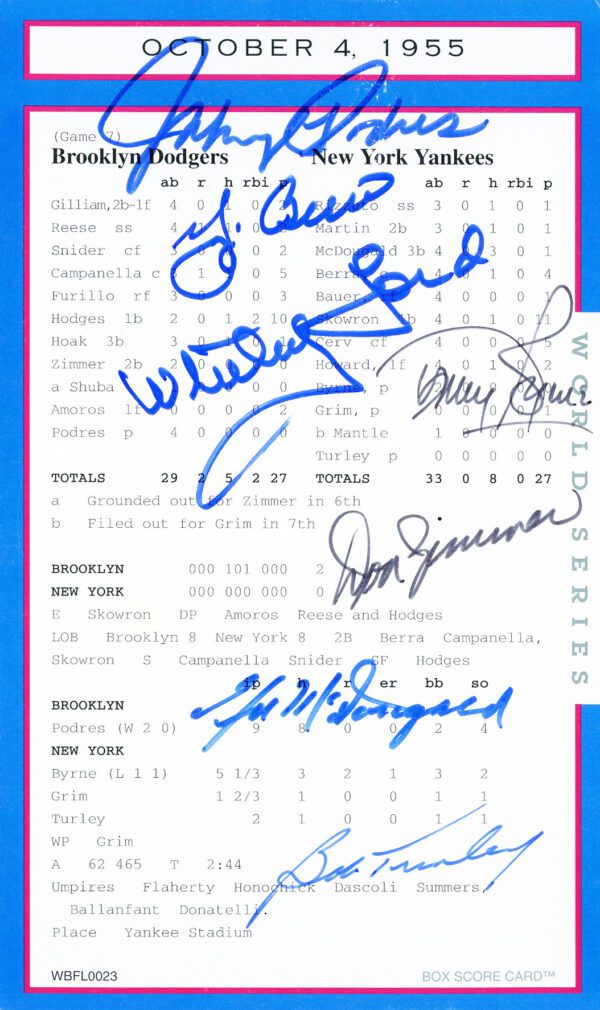 OCTOBER 4, 1955
Johnny Podres
(Game 7)
Brooklyn Dodgers New York Yankees
ab r h rbi p ab r h rbi p
Gilliam,2b-lf 4 0 1 0 2 Rizzuto ss 3 0 1 0 1
Reese ss 4 1 1 0 Martin 2b 3 0 1 0 1
Y. Berra
Snider cf 3 0 0 0 2 McDougald 3b 4 0 3 0 1
Campanella c 3 1 1 0 5 Berra, c 4 0 1 0 4
Furillo rf 3 0 0 0 3 Bauer, rf 4 0 0 0 1
Whitey Ford
Hodges 1b 2 0 1 2 10 Skowron 1b 4 0 1 0 11
Hoak 3b 3 0 1 0 1 Cerv cf 4 0 0 0 5
Zimmer 2b 2 0 0 Howard, lf 4 0 1 0 2
Tommy Byrne
a Shuba Byrne, p
Amoros lf 0 0 0 2 Grim, p
Podres p 4 0 0 0 0 b Mantle 1 0 0 0 0
Turley p 0 0 0 0 0
TOTALS 29 2 5 2 27 TOTALS 33 0 8 0 27
a Grounded out for Zimmer in 6th
b Filed out for Grim in 7th
Don Zimmer
BROOKLYN 000 101 000 2
NEW YORK 000 000 000 0
E Skowron DP Amoros Reese and Hodges
LOB Brooklyn 8 New York 8 2B Berra Campanella,
Skowron S Campanella Snider SF Hodges
ip h r er bb so
BROOKLYN
Gil McDougald
Podres (W 2 0) 9 8 0 0 2 4
NEW YORK
Byrne (L 1 1) 5 1/3 3 2 1 3 2
Grim 1 2/3 1 0 0 1 1
Turley 2 1 0 0 1 1
WP Grim
Bob Turley
A 62 465 T 2:44
Umpires Flaherty Honochick Dascoli Summers,
Ballanfant Donatelli.
Place Yankee Stadium
WBFL0023 BOX SCORE CARD™
WORLD SERIES